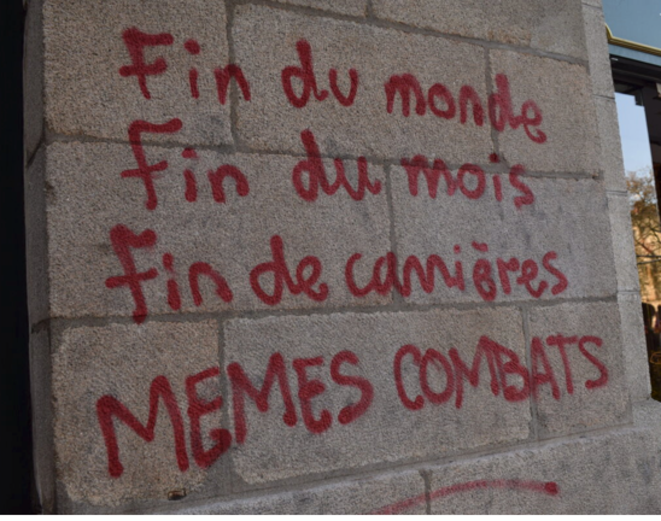 Fin du monde
Fin du mois
Fin de carrières
MEMES COMBATS